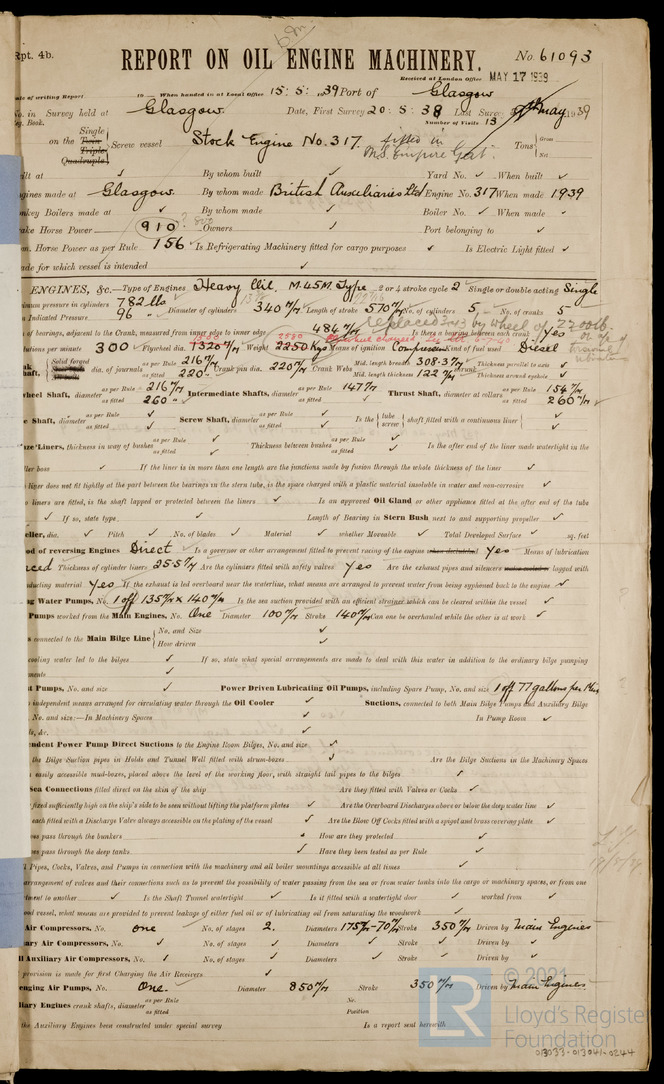 Rpt. 4b.
REPORT ON OIL ENGINE MACHINERY.
No. 61093
Received at London Office MAY 17 1939
of writing Report 19 When handed in at Local Office 15: 5: 1939 Port of Glasgow
No. in Survey held at Glasgow Date, First Survey 20: 5: 38 Last Survey 9th May 1939
Reg. Book. Number of Visits 13
on the Single Twin Triple Quadruple Screw vessel Stock Engine No. 317. fitted in M.S. Empire Tons Gross Net
Built at ✓ By whom built ✓ Yard No. ✓ When built ✓
Engines made at Glasgow By whom made British Auxiliaries Ltd Engine No. 317 When made 1939
Donkey Boilers made at ✓ By whom made ✓ Boiler No. ✓ When made ✓
Brake Horse Power 910 Owners Port belonging to ✓
Nom. Horse Power as per Rule 156 Is Refrigerating Machinery fitted for cargo purposes ✓ Is Electric Light fitted ✓
Trade for which vessel is intended ✓
ENGINES, &c. Type of Engines Heavy Oil. M.45M. Type 2 or 4 stroke cycle 2 Single or double acting Single
Maximum pressure in cylinders 782 lbs Diameter of cylinders 340 m/m Length of stroke 570 m/m No. of cylinders 5 No. of cranks 5
Mean Indicated Pressure 96
of bearings, adjacent to the Crank, measured from inner edge to inner edge 484 m/m Is there a bearing between each crank Yes
Revolutions per minute 300 Flywheel dia. 1320 m/m Weight 2250 Kgs Means of ignition Compression Kind of fuel used Diesel
Crank Shaft, Solid forged dia. of journals as per Rule 216 m/m as fitted 220 Crank pin dia. 220 m/m Crank Webs Mid. length breadth 308.3 m/m Mid. length thickness 122 m/m shrunk Thickness parallel to axis ✓ Thickness around eyehole ✓
Flywheel Shaft, diameter as per Rule 216 m/m as fitted 260 Intermediate Shafts, diameter as per Rule 147 m/m as fitted Thrust Shaft, diameter at collars as per Rule 154 m/m as fitted 260 m/m
Shaft, diameter as per Rule ✓ as fitted ✓ Screw Shaft, diameter as per Rule ✓ as fitted ✓ Is the tube screw shaft fitted with a continuous liner ✓
Bronze Liners, thickness in way of bushes as per Rule as fitted ✓ Thickness between bushes as per Rule as fitted ✓ Is the after end of the liner made watertight in the
propeller boss ✓ If the liner is in more than one length are the junctions made by fusion through the whole thickness of the liner ✓
liner does not fit tightly at the part between the bearings in the stern tube, is the space charged with a plastic material insoluble in water and non-corrosive ✓
liners are fitted, is the shaft lapped or protected between the liners ✓ Is an approved Oil Gland or other appliance fitted at the after end of the tube
✓ If so, state type ✓ Length of Bearing in Stern Bush next to and supporting propeller ✓
Propeller, dia. ✓ Pitch ✓ No. of blades ✓ Material ✓ whether Moveable ✓ Total Developed Surface ✓ sq. feet
Method of reversing Engines Direct Is a governor or other arrangement fitted to prevent racing of the engine when declutched Yes Means of lubrication
Forced Thickness of cylinder liners 25.5 m/m Are the cylinders fitted with safety valves Yes Are the exhaust pipes and silencers lagged with
non-conducting material Yes If the exhaust is led overboard near the waterline, what means are arranged to prevent water being syphoned back to the engine ✓
Cooling Water Pumps, No. 1 off 135 m/m x 140 m/m Is the sea suction provided with an efficient strainer which can be cleared within the vessel ✓
Pumps worked from the Main Engines, No. One Diameter 100 m/m Stroke 140 m/m Can one be overhauled while the other is at work ✓
connected to the Main Bilge Line No. and Size ✓ How driven ✓
cooling water led to the bilges ✓ If so, state what special arrangements are made to deal with this water in addition to the ordinary bilge pumping
arrangements ✓
Ballast Pumps, No. and size ✓ Power Driven Lubricating Oil Pumps, including Spare Pump, No. and size 1 off 77 gallons per Min
independent means arranged for circulating water through the Oil Cooler ✓ Suctions, connected to both Main Bilge Pumps and Auxiliary Bilge
No. and size:—In Machinery Spaces ✓ In Pump Room ✓
&c. ✓
Independent Power Pump Direct Suctions to the Engine Room Bilges, No. and size ✓
the Bilge Suction pipes in Holds and Tunnel Well fitted with strum-boxes ✓ Are the Bilge Suctions in the Machinery Spaces
easily accessible mud-boxes, placed above the level of the working floor, with straight tail pipes to the bilges ✓
Sea Connections fitted direct on the skin of the ship ✓ Are they fitted with Valves or Cocks ✓
fixed sufficiently high on the ship's side to be seen without lifting the platform plates ✓ Are the Overboard Discharges above or below the deep water line ✓
each fitted with a Discharge Valve always accessible on the plating of the vessel ✓ Are the Blow Off Cocks fitted with a spigot and brass covering plate ✓
pipes pass through the bunkers ✓ How are they protected ✓
pipes pass through the deep tanks ✓ Have they been tested as per Rule ✓
Pipes, Cocks, Valves, and Pumps in connection with the machinery and all boiler mountings accessible at all times ✓
arrangement of valves and their connections such as to prevent the possibility of water passing from the sea or from water tanks into the cargo or machinery spaces, or from one
compartment to another ✓ Is the Shaft Tunnel watertight ✓ Is it fitted with a watertight door ✓ worked from ✓
wood vessel, what means are provided to prevent leakage of either fuel oil or of lubricating oil from saturating the woodwork ✓
Main Air Compressors, No. one No. of stages 2. Diameters 175 m/m-70 m/m Stroke 350 m/m Driven by Main Engines
Auxiliary Air Compressors, No. ✓ No. of stages ✓ Diameters ✓ Stroke ✓ Driven by ✓
Small Auxiliary Air Compressors, No. ✓ No. of stages ✓ Diameters ✓ Stroke ✓ Driven by ✓
provision is made for first Charging the Air Receivers ✓
Scavenging Air Pumps, No. One. Diameter 850 m/m Stroke 350 m/m Driven by Main Engines
Auxiliary Engines crank shafts, diameter as per Rule as fitted No. Position
the Auxiliary Engines been constructed under special survey Is a report sent herewith
© 2021
LR
Lloyd's Register
Foundation
013033-013041-0244